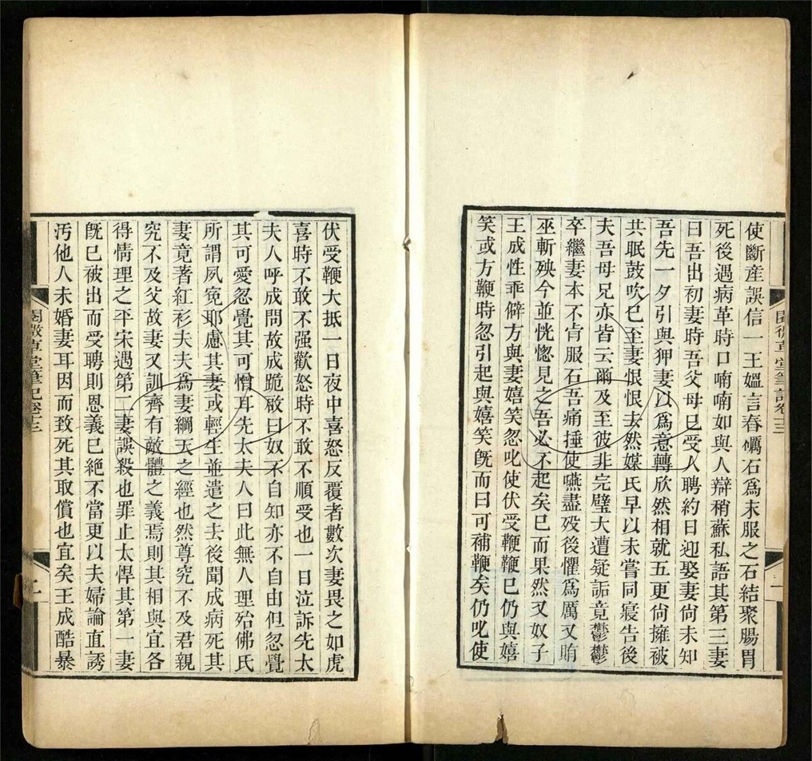 使斷產誤信一王媼言舂礪石爲末服之石結聚腸胃
死後遇病革時口喃喃如與人辯稍蘇私語其第三妻
曰吾出初妻時吾父母已受人聘約日迎娶妻尙未知
吾先一夕引與狎妻以爲意轉欣然相就五更尙擁被
共眠鼓吹已至妻恨恨去然媒氏早以未嘗同寢告後
夫吾母兄亦皆云爾及至彼非完璧大遭疑詬竟鬱鬱
卒繼妻本不肯服石吾痛捶使嚥盡歿後懼爲厲又賄
巫斬殃今並恍惚見之吾必不起矣已而果然又奴子
王成性乖僻方與妻嬉笑忽叱使伏受鞭鞭已仍與嬉
笑或方鞭時忽引起與嬉笑旣而曰可補鞭矣仍叱使
閱微草堂筆記卷二三
二
伏受鞭大抵一日夜中喜怒反覆者數次妻畏之如虎
喜時不敢不强歡怒時不敢不順受也一日泣訴先太
夫人呼成問故成跪啟曰奴不自知亦不自由但忽覺
其可愛忽覺其可憎耳先太夫人曰此無人理殆佛氏
所謂夙寃耶慮其妻或輕生並遣之去後聞成病死其
妻竟著紅衫夫夫爲妻綱天之經也然尊究不及君親
究不及父故妻又訓齊有敵體之義焉則其相與宜各
得情理之平宋遇第二妻誤殺也罪止太悍其第一妻
旣已被出而受聘則恩義已絶不當更以夫婦論直誘
汚他人未婚妻耳因而致死其取償也宜矣王成酷暴